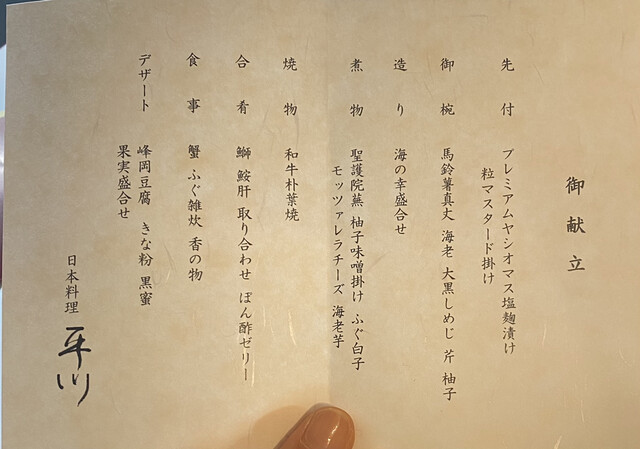 御献立
先付
プレミアムヤシオマス塩麹漬け
粒マスタード掛け
御椀
馬鈴薯真丈 海老 大黒しめじ 芹 柚子
造り
海の幸盛合せ
煮物
聖護院蕪 柚子味噌掛け ふぐ白子
モッツァレラチーズ 海老芋
焼物
和牛朴葉焼
合肴
鰤 鮟肝 取り合わせ ぽん酢ゼリー
食事
蟹 ふぐ雑炊 香の物
デザート
峰岡豆腐 きな粉 黒蜜
果実盛合せ
日本料理 平川